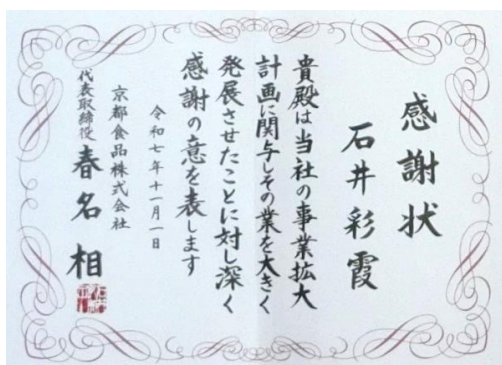 感謝状
石井彩霞
貴殿は当社の事業拡大
計画に関与しその業を大きく
発展させたことに対し深く
感謝の意を表します
令和七年十一月一日
京都食品株式会社
代表取締役 春名 相